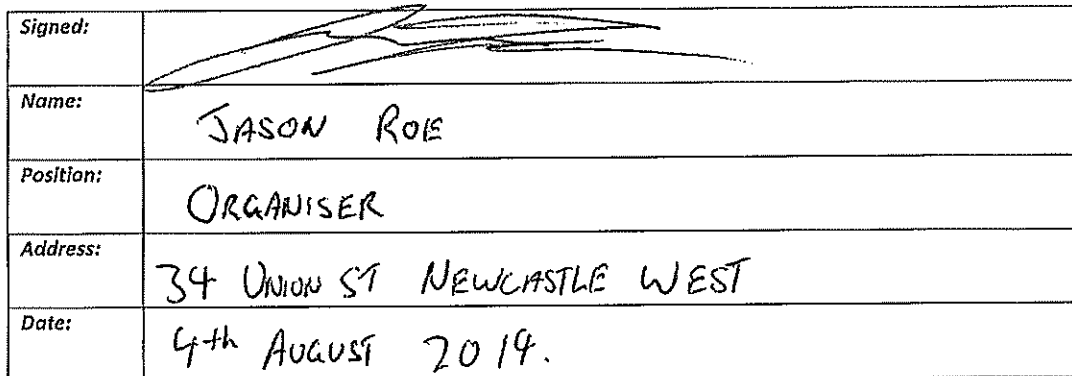 Signed:
Name: JASON ROE
Position: ORGANISER
Address: 34 UNION ST NEWCASTLE WEST
Date: 4th AUGUST 2014.